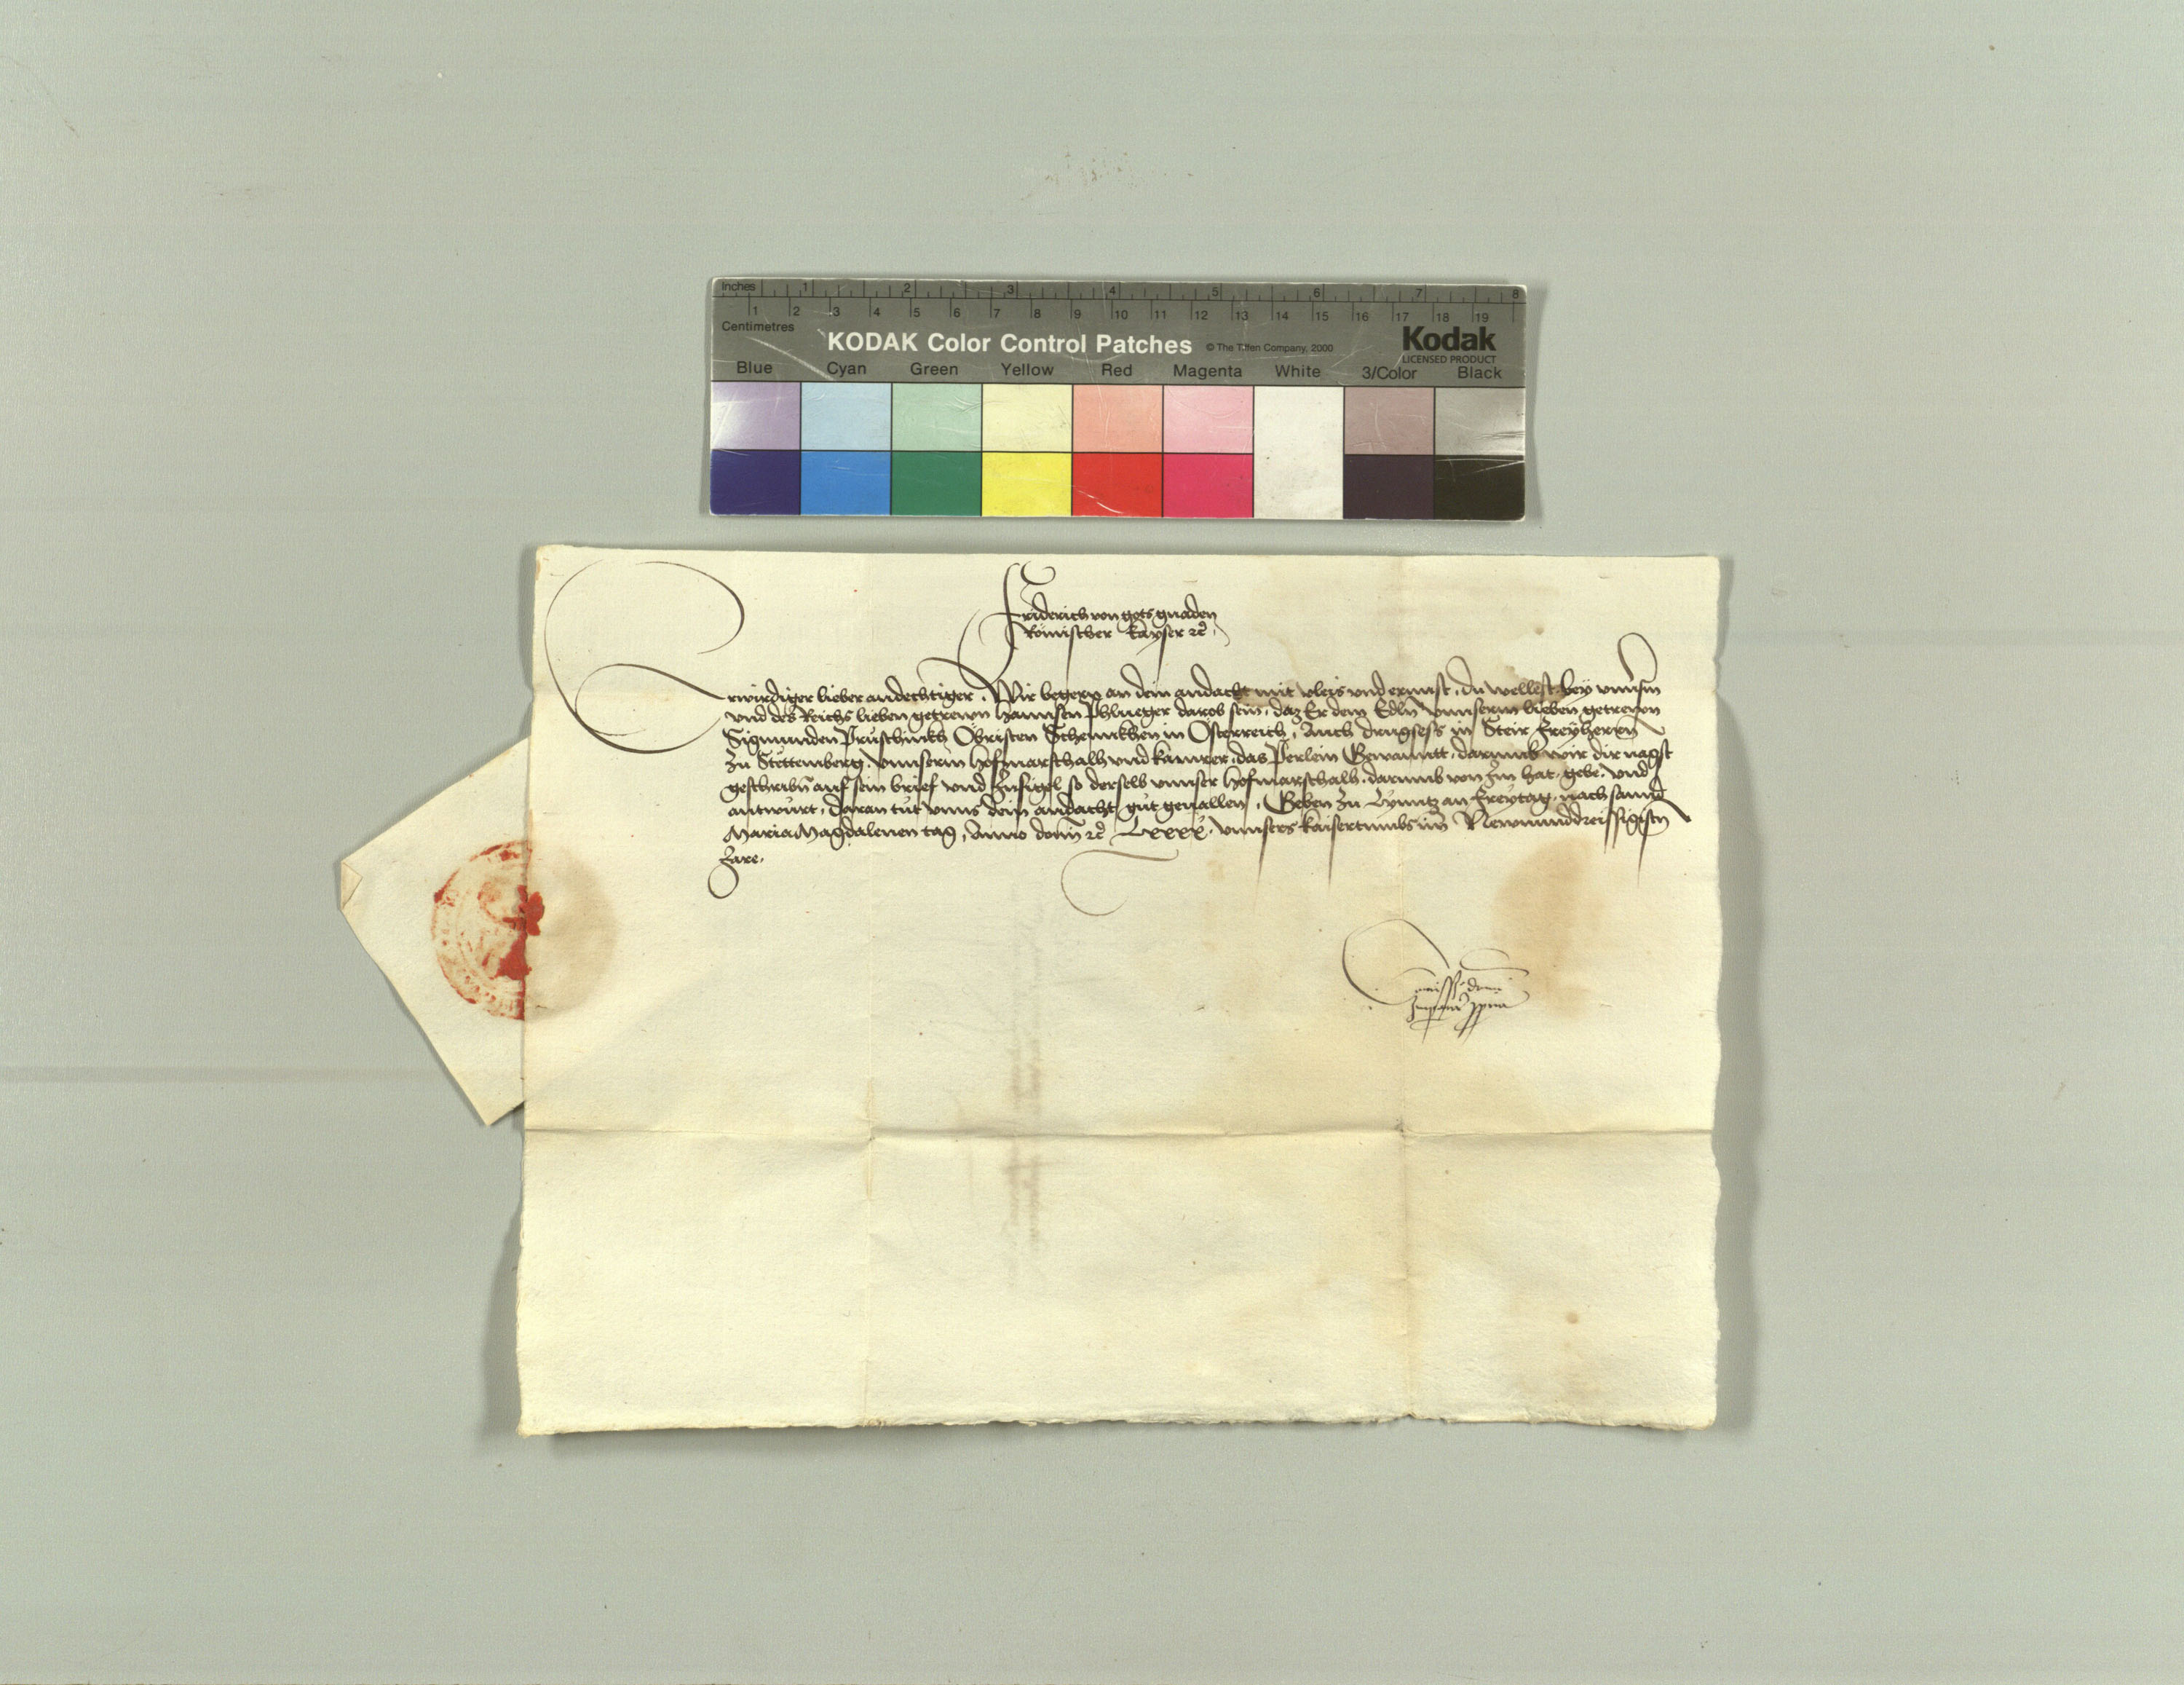 Inches 1 2 3 4 5 6 7 8
1 2 3 4 5 6 7 8 9 10 11 12 13 14 15 16 17 18 19
Centimetres
KODAK Color Control Patches © The Tiffen Company, 2000 Kodak
LICENSED PRODUCT
Blue Cyan Green Yellow Red Magenta White 3/Color Black
Friderich von gots gnaden
Römischer kayser etc.
Erwirdiger lieber andechtiger. Wir begern an dein andacht mit vleis vnd ernnst, du wellest bey vnnserm
vnd des Reichs lieben getrewn Hannsen Phlueger darob sein, daz Er dem Edln vnnserm lieben getrewn
Sigmunden Prüschinkh Öbristen Schennkhen in Österreich, Auch drugsess in Steir Freyherrn
zu Stettemberg, vnnserm Hofmarschalh vnd kamrer, das Perlein Gewannt, darumb wir dir nagst
geschribn auf sein brief vnd Innsigel so derselb vnnser Hofmarschalh darumb von Im hat, gebe, vnd
antwurt, daran tut vnns dein andacht gut geuallen. Geben zu Lynntz an Freytag nach sannd
Maria Magdalenen tag, Anno domini etc. Lxxxx, vnnsers kaisertumbs im Newnunddreissigisten
Jare.
Commissio domini
Imperatoris propria